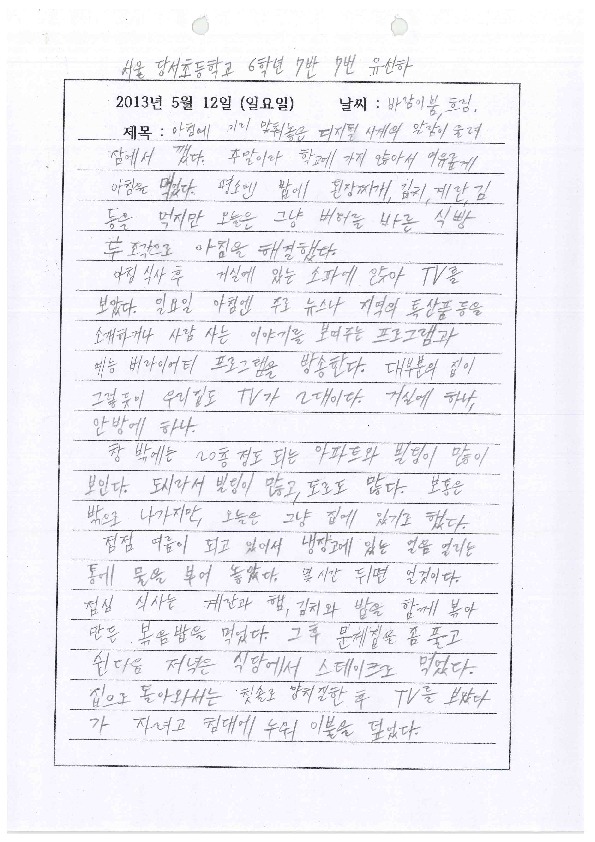 서울 당서초등학교 6학년 7반 7번 유신하
2013년 5월 12일 (일요일) 날씨 : 바람이붐, 흐림.
제목 : 아침에 미리 맞춰놓은 디지털 시계의 알람이 울려
잠에서 깼다. 주말이라 학교에 가지 않아서 여유롭게
아침을 먹었다. 평소엔 밥에 된장찌개, 김치, 계란, 김
등을 먹지만 오늘은 그냥 버터를 바른 식빵
두 조각으로 아침을 해결했다.
아침 식사 후 거실에 있는 소파에 앉아 TV를
보았다. 일요일 아침엔 주로 뉴스나 지역의 특산품 등을
소개하거나 사람 사는 이야기를 보여주는 프로그램과
예능 버라이어티 프로그램을 방송한다. 대부분의 집이
그렇듯이 우리집도 TV가 2대이다. 거실에 하나,
안방에 하나.
창 밖에는 20층 정도 되는 아파트와 빌딩이 많이
보인다. 도시라서 빌딩이 많고, 도로도 많다. 보통은
밖으로 나가지만, 오늘은 그냥 집에 있기로 했다.
점점 여름이 되고 있어서 냉장고에 있는 얼음 얼리는
통에 물을 부어 놓았다. 몇 시간 뒤면 얼것이다.
점심 식사는 계란과 햄, 김치와 밥을 함께 볶아
만든 볶음밥을 먹었다. 그 후 문제집을 좀 풀고
쉰다음 저녁은 식당에서 스테이크로 먹었다.
집으로 돌아와서는 칫솔로 양치질한 후 TV를 보았다
가 자려고 침대에 누워 이불을 덮었다.